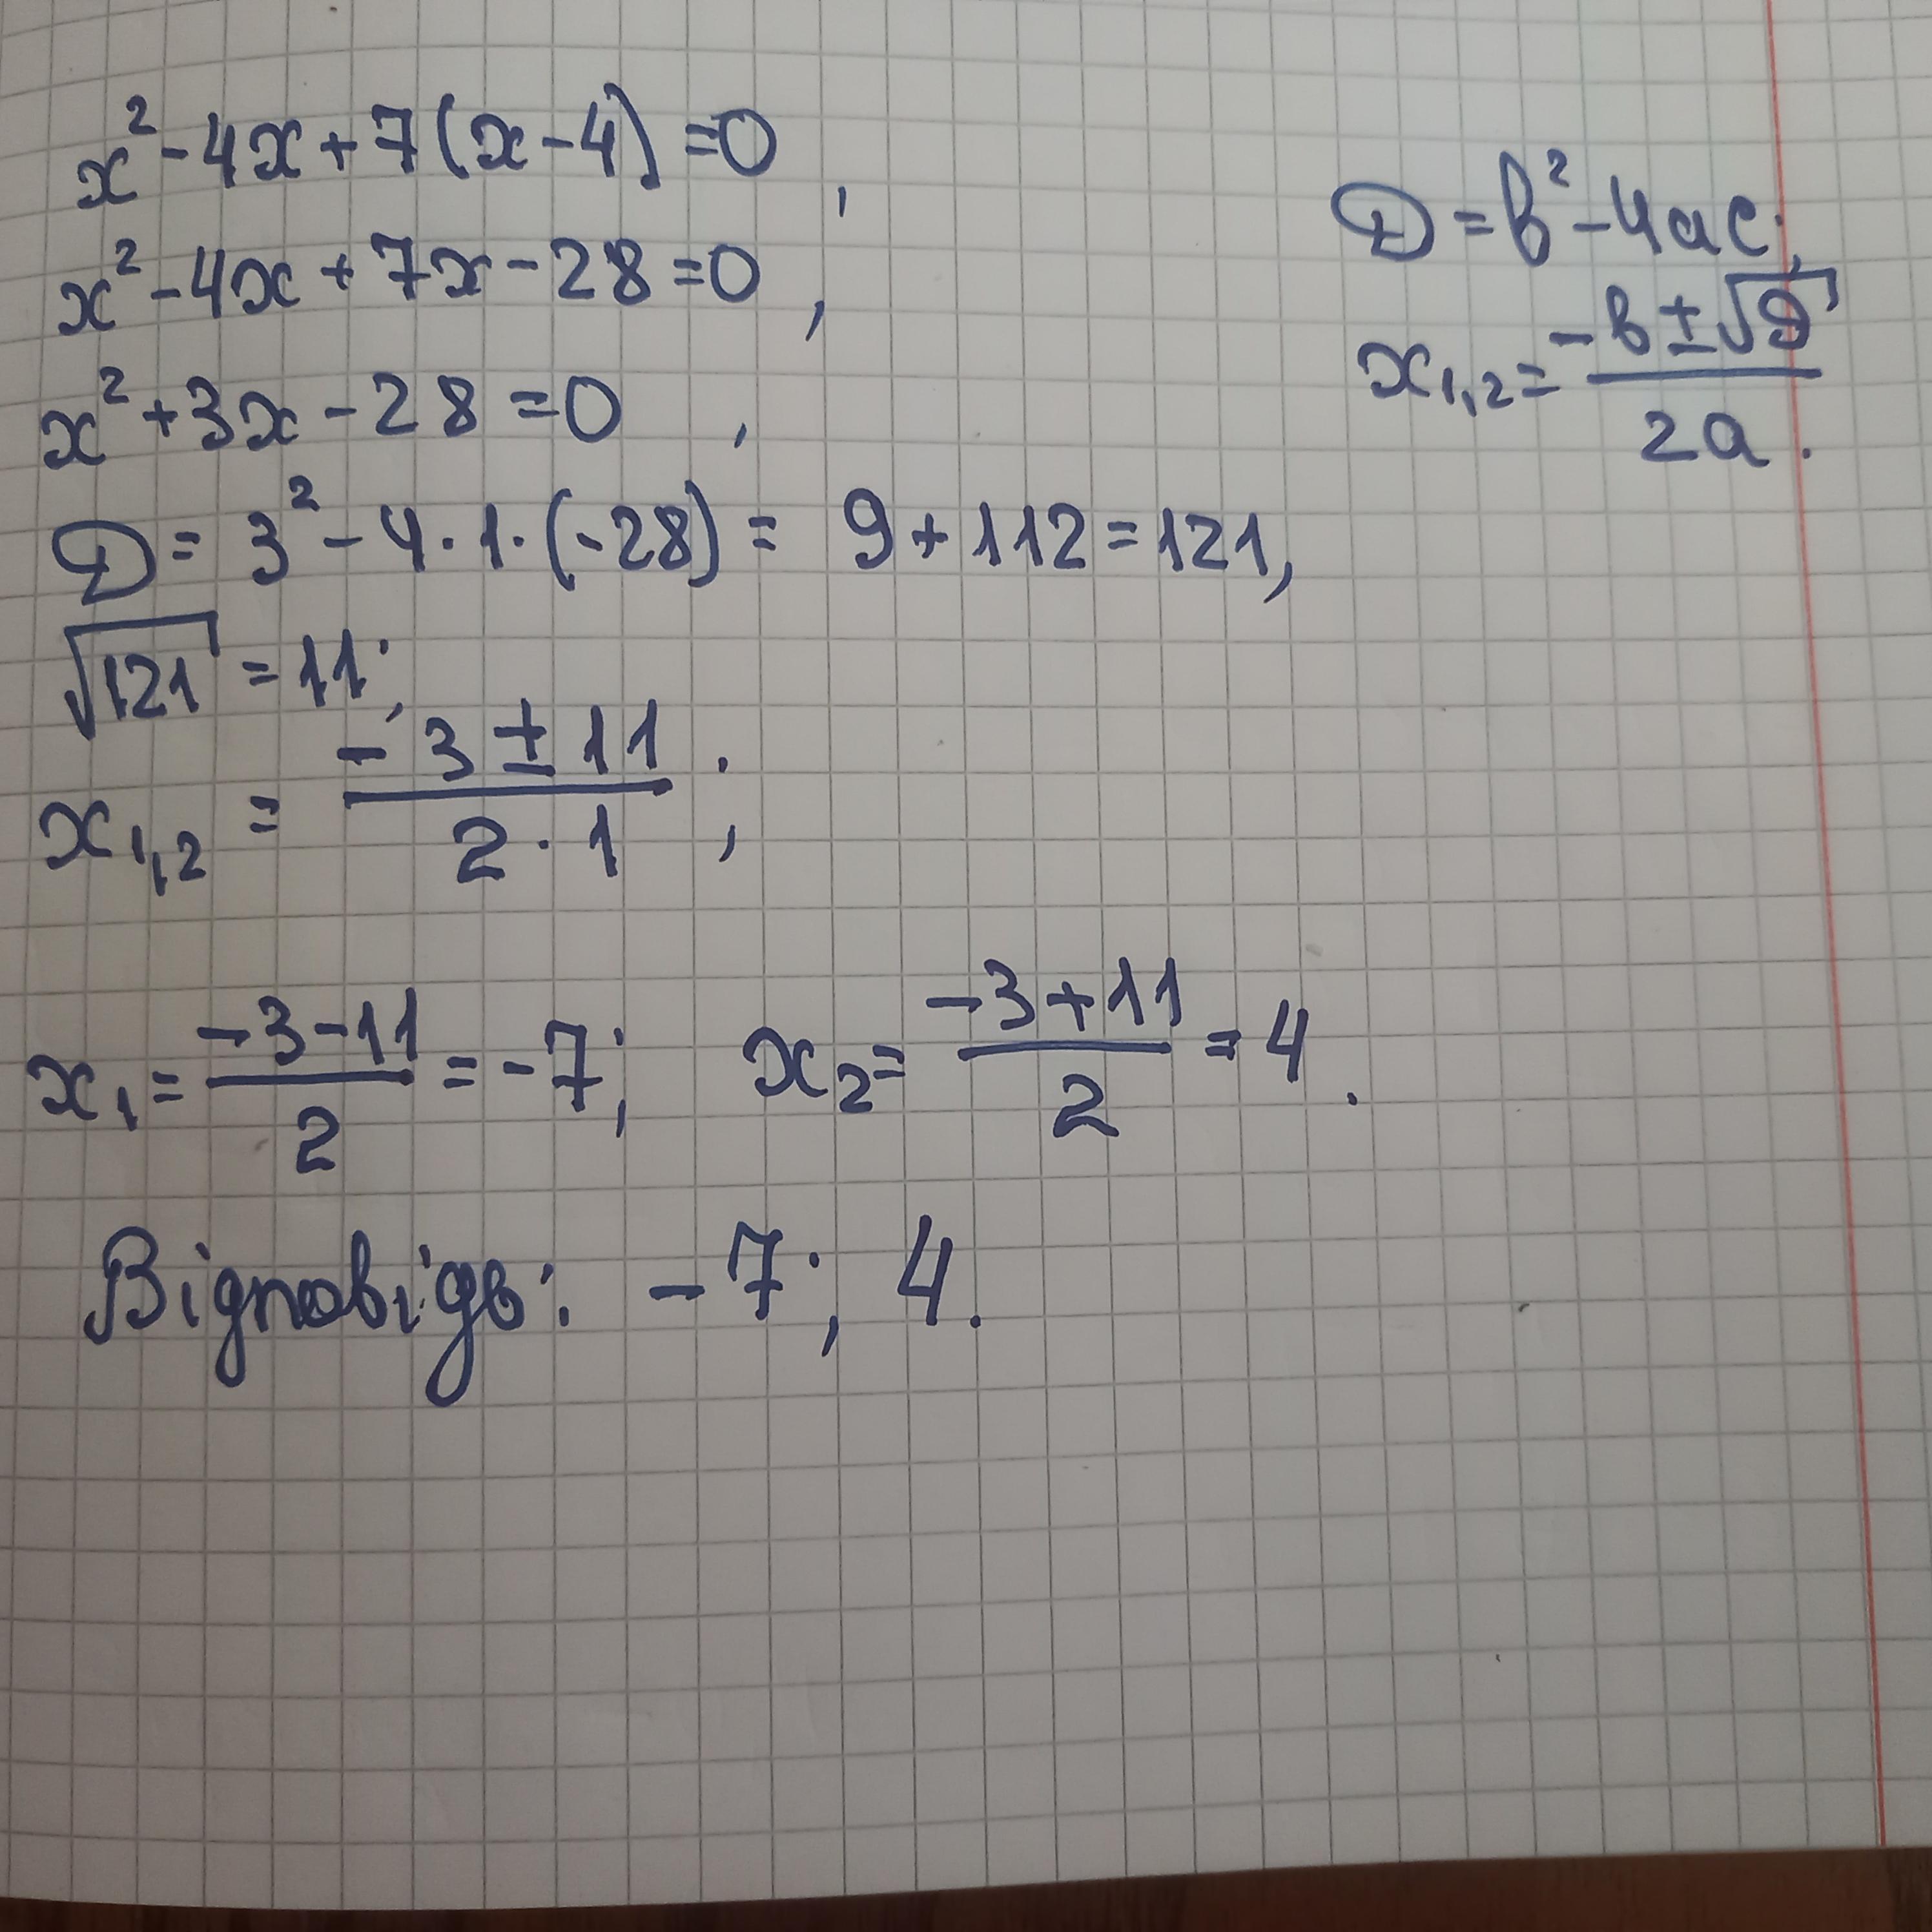 x² - 4x + 7(x - 4) = 0,
x² - 4x + 7x - 28 = 0,
x² + 3x - 28 = 0,
D = 3² - 4 · 1 · (-28) = 9 + 112 = 121,
√121 = 11;
x₁,₂ = (-3 ± 11)/(2 · 1);
x₁ = (-3 - 11)/2 = -7; x₂ = (-3 + 11)/2 = 4.
Відповідь: -7; 4.
D = b² - 4ac;
x₁,₂ = (-b ± √D)/(2a).